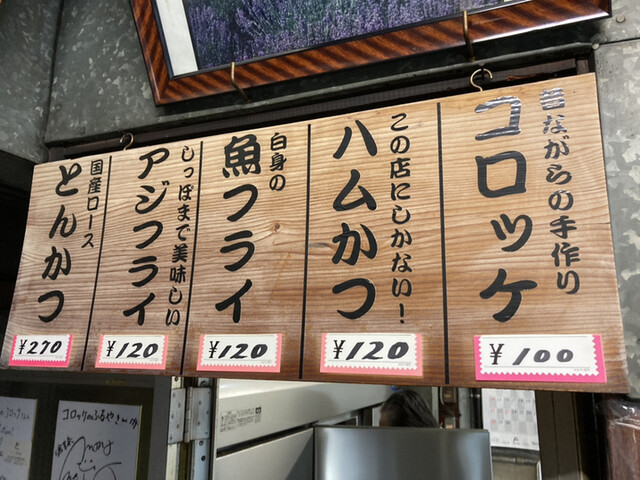 昔ながらの手作り
コロッケ
¥100
この店にしかない!
ハムかつ
¥120
白身の
魚フライ
¥120
しっぽまで美味しい
アジフライ
¥120
国産ロース
とんかつ
¥270